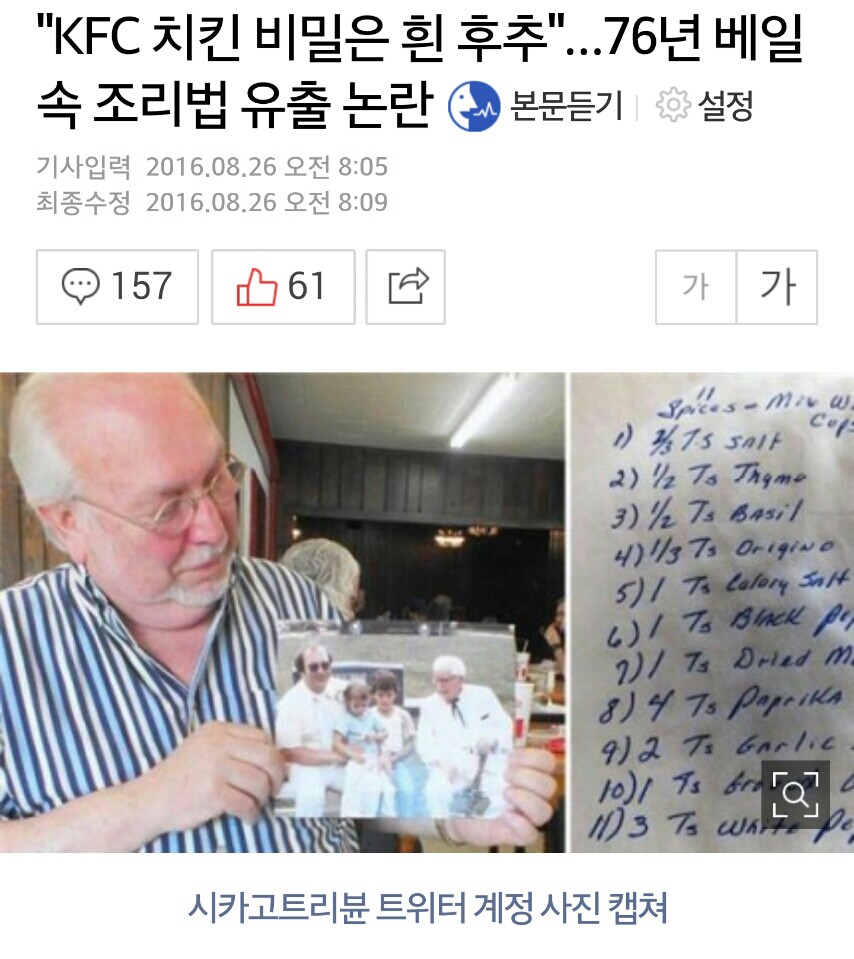 "KFC 치킨 비밀은 흰 후추"...76년 베일
속 조리법 유출 논란 본문듣기 설정
기사입력 2016.08.26 오전 8:05
최종수정 2016.08.26 오전 8:09
157 61 가 가
11
Spices - Mix W
1) 2/3 Ts Salt
2) 1/2 Ts Thyme
3) 1/2 Ts Basil
4) 1/3 Ts Origino
5) 1 Ts Celory Salt
6) 1 Ts Black
7) 1 Ts Dried
8) 4 Ts Paprika
9) 2 Ts Garlic
10) 1 Ts
11) 3 Ts White
시카고트리뷴 트위터 계정 사진 캡쳐